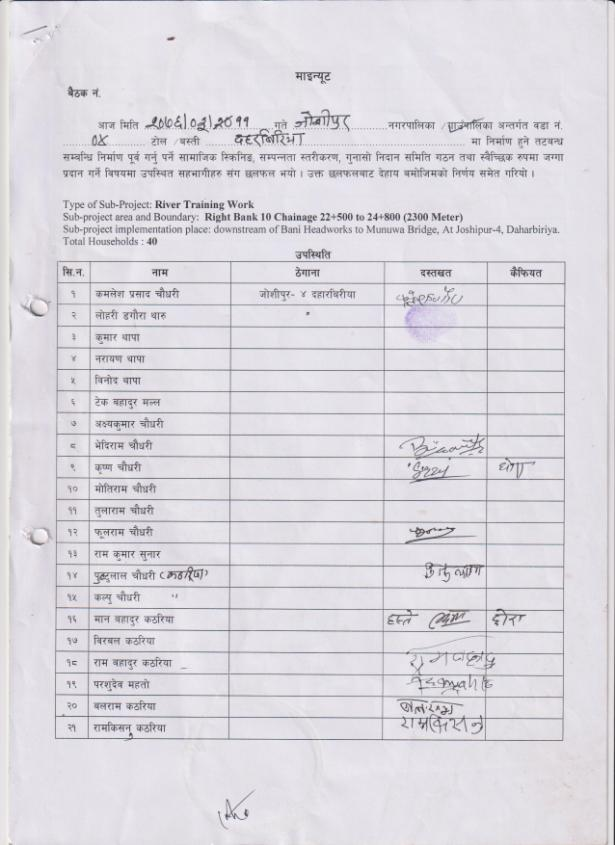 माइन्यूट
बैठक नं.
आज मिति २०७६/०३/२०११ गते जोशीपुर नगरपालिका /गाउँपालिका अन्तर्गत वडा नं.
०४ टोल /बस्ती दहरबिरिया मा निर्माण हुने तटबन्ध
सम्बन्धि निर्माण पूर्व गर्नु पर्ने सामाजिक स्क्रिनिङ, सम्पन्नता स्तरीकरण, गुनासो निदान समिति गठन तथा स्वैच्छिक रुपमा जग्गा
प्रदान गर्ने बिषयमा उपस्थित सहभागीहरु संग छलफल भयो । उक्त छलफलबाट देहाय बमोजिमको निर्णय समेत गरियो ।
Type of Sub-Project: River Training Work
Sub-project area and Boundary: Right Bank 10 Chainage 22+500 to 24+800 (2300 Meter)
Sub-project implementation place: downstream of Bani Headworks to Munuwa Bridge, At Joshipur-4, Daharbiriya.
Total Households : 40
उपस्थिति
सि.न. नाम ठेगाना दस्तखत कैफियत
१ कमलेश प्रसाद चौधरी जोशीपुर- ४ दहारबिरीया
२ लोहरी डगौरा थारु "
३ कुमार थापा
४ नरायण थापा
५ विनोद थापा
६ टेक बहादुर मल्ल
७ अक्ष्यकुमार चौधरी
८ भेदिराम चौधरी
९ कृष्ण चौधरी
१० मोतिराम चौधरी
११ तुलाराम चौधरी
१२ फूलराम चौधरी
१३ राम कुमार सुनार
१४ फुल्टुलाल चौधरी (कठरिया)
१५ कल्पु चौधरी "
१६ मान बहादुर कठरिया हस्ते छोरा
१७ बिरबल कठरिया
१८ राम बहादुर कठरिया
१९ परशुदेव महतो
२० बलराम कठरिया बलराम
२१ रामकिसनु कठरिया रामकिसन